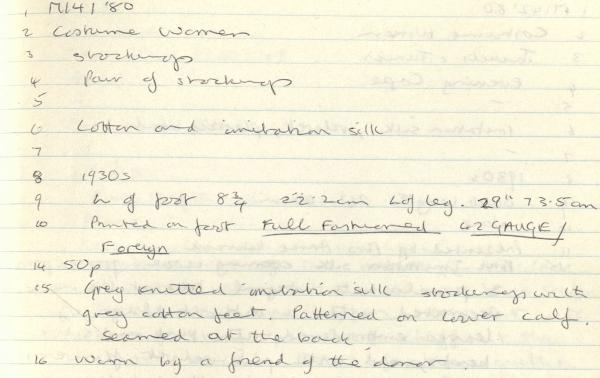 1 M141 '80
2 Costume Women
3 Stockings
4 Pair of stockings
5
6 Cotton and imitation silk
7
8 1930s
9 L of foot 8 3/4 22.2cm L of leg. 29" 73.5cm
10 Printed on foot Full Fashioned 42 GAUGE/
Foreign
14 50p
15 Grey knitted imitation silk stockings with
grey cotton feet. Patterned on lower calf.
Seamed at the back
16 Worn by a friend of the donor